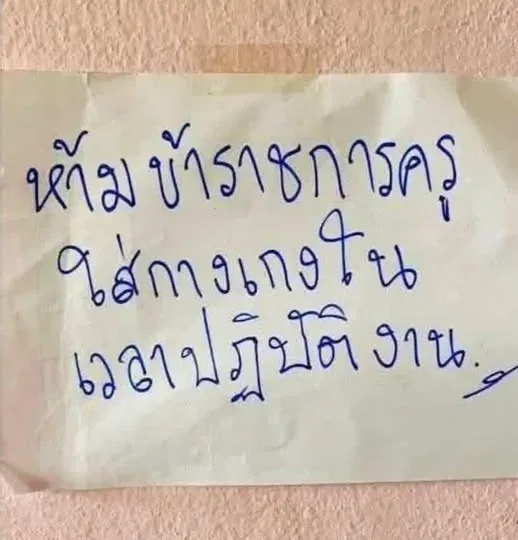 ห้ามข้าราชการครู
ใส่กางเกงใน
เวลาปฏิบัติงาน.